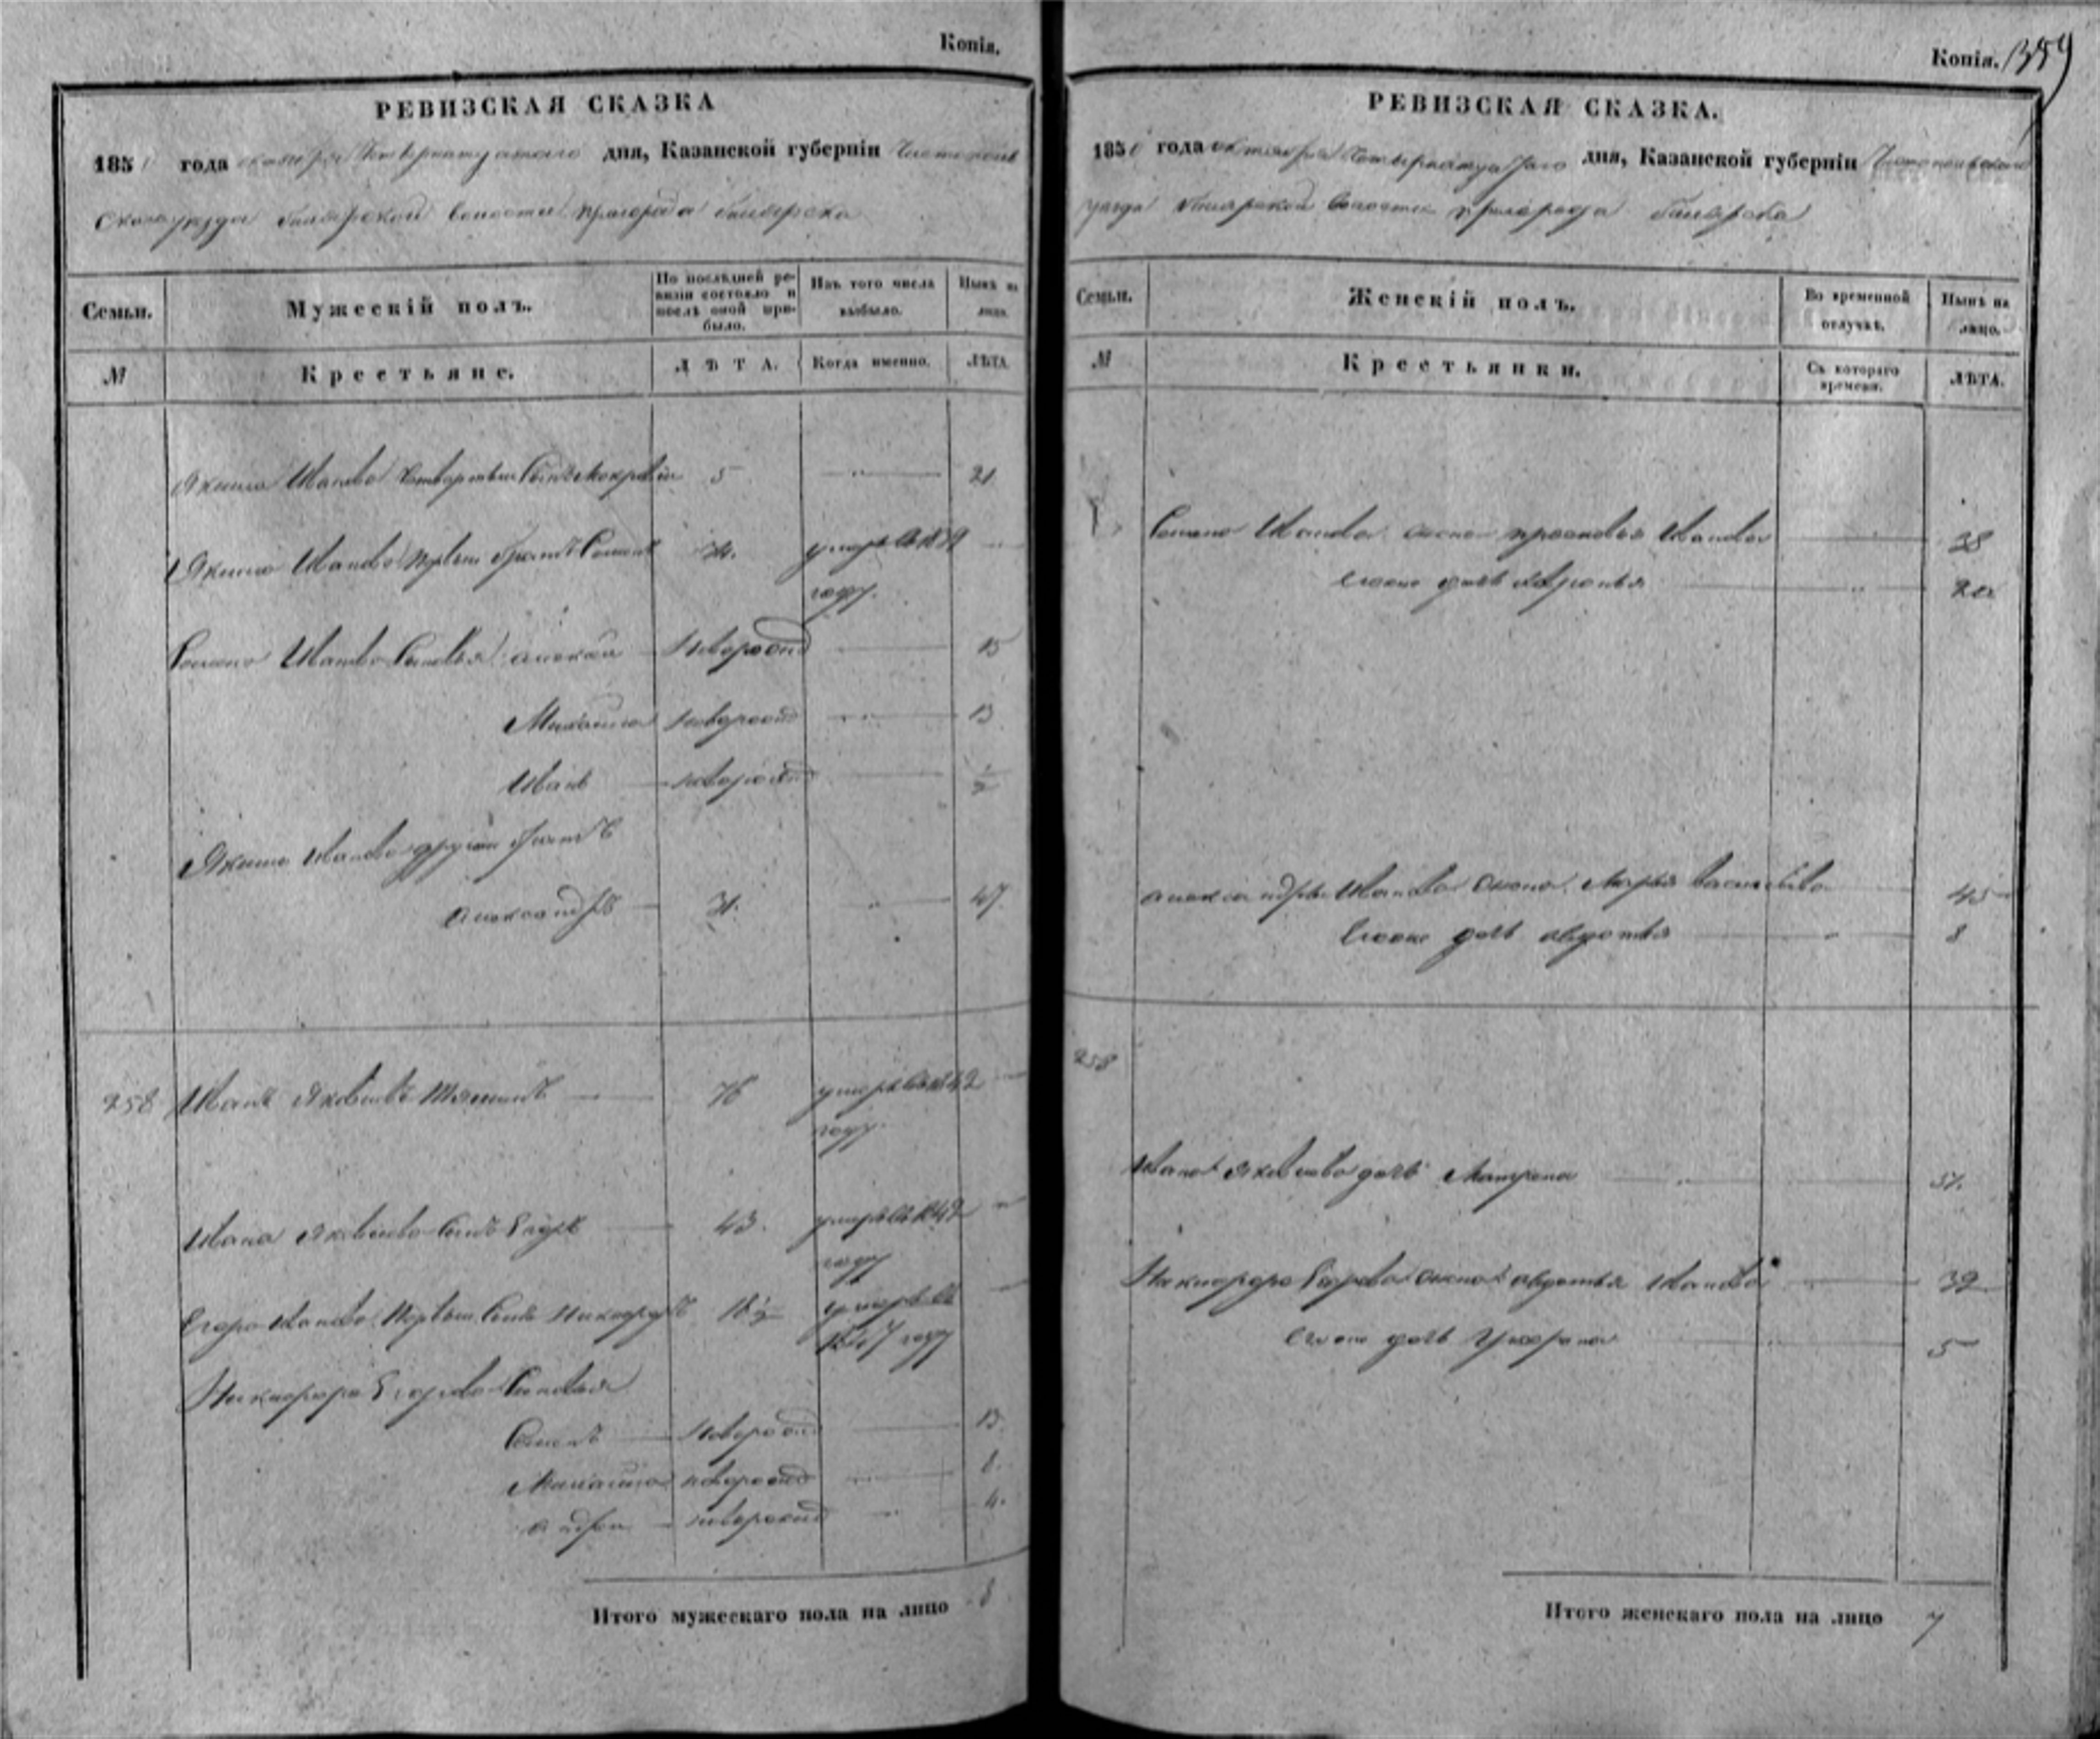 Копія.
РЕВИЗСКАЯ СКАЗКА
1850 года октября четырнатцатаго дня, Казанской губерніи Чистополь
скаго уезда билярской волости пригорода билярска
Семьи.
Мужескій полъ.
По послѣдней ре-
визіи состояло и
послѣ оной при-
было.
Изъ того числа
выбыло.
Нынѣ на
лицо.
№
Крестьяне.
ЛѢТА.
Когда именно.
ЛѢТА.
Якима Иванова четвертый сынъ 5 21
Якима Иванова первый братъ Семенъ умеръ въ
году.
Семена Иванова сыновья новорожд 15
Михаила новорожд 13
Иванъ новорожд ½
Якима Иванова другой братъ
Александръ 31. 47.
258 Иванъ Яковлевъ 76 умеръ въ 1842
году.
Ивана Яковлева сынъ Егоръ 43. умеръ въ 1842
году
Егора Иванова первый сынъ Никифоръ 18½ умеръ въ
1847 году
Никифора Егорова сыновья
Семенъ новорожд 13.
Михаила новорожд 8.
Андрей новорожд 4.
Итого мужескаго пола на лицо 8
Копія. 1359
РЕВИЗСКАЯ СКАЗКА.
1850 года октября четырнатцатаго дня, Казанской губерніи Чистопольскаго
уезда билярской волости пригорода билярска
Семьи.
Женскій полъ.
Во временной
отлучкѣ.
Нынѣ на
лицо.
№
Крестьянки.
Съ котораго
времени.
ЛѢТА.
Семена Иванова жена прасковья Иванова 38
Его же дочь 20
александра Иванова жена Марья васильева 45
Его же дочь авдотья 8
258
Ивана Яковлева дочь Матрена 51.
Никифора Егорова жена авдотья Иванова 39
Его же дочь 5
Итого женскаго пола на лицо 7